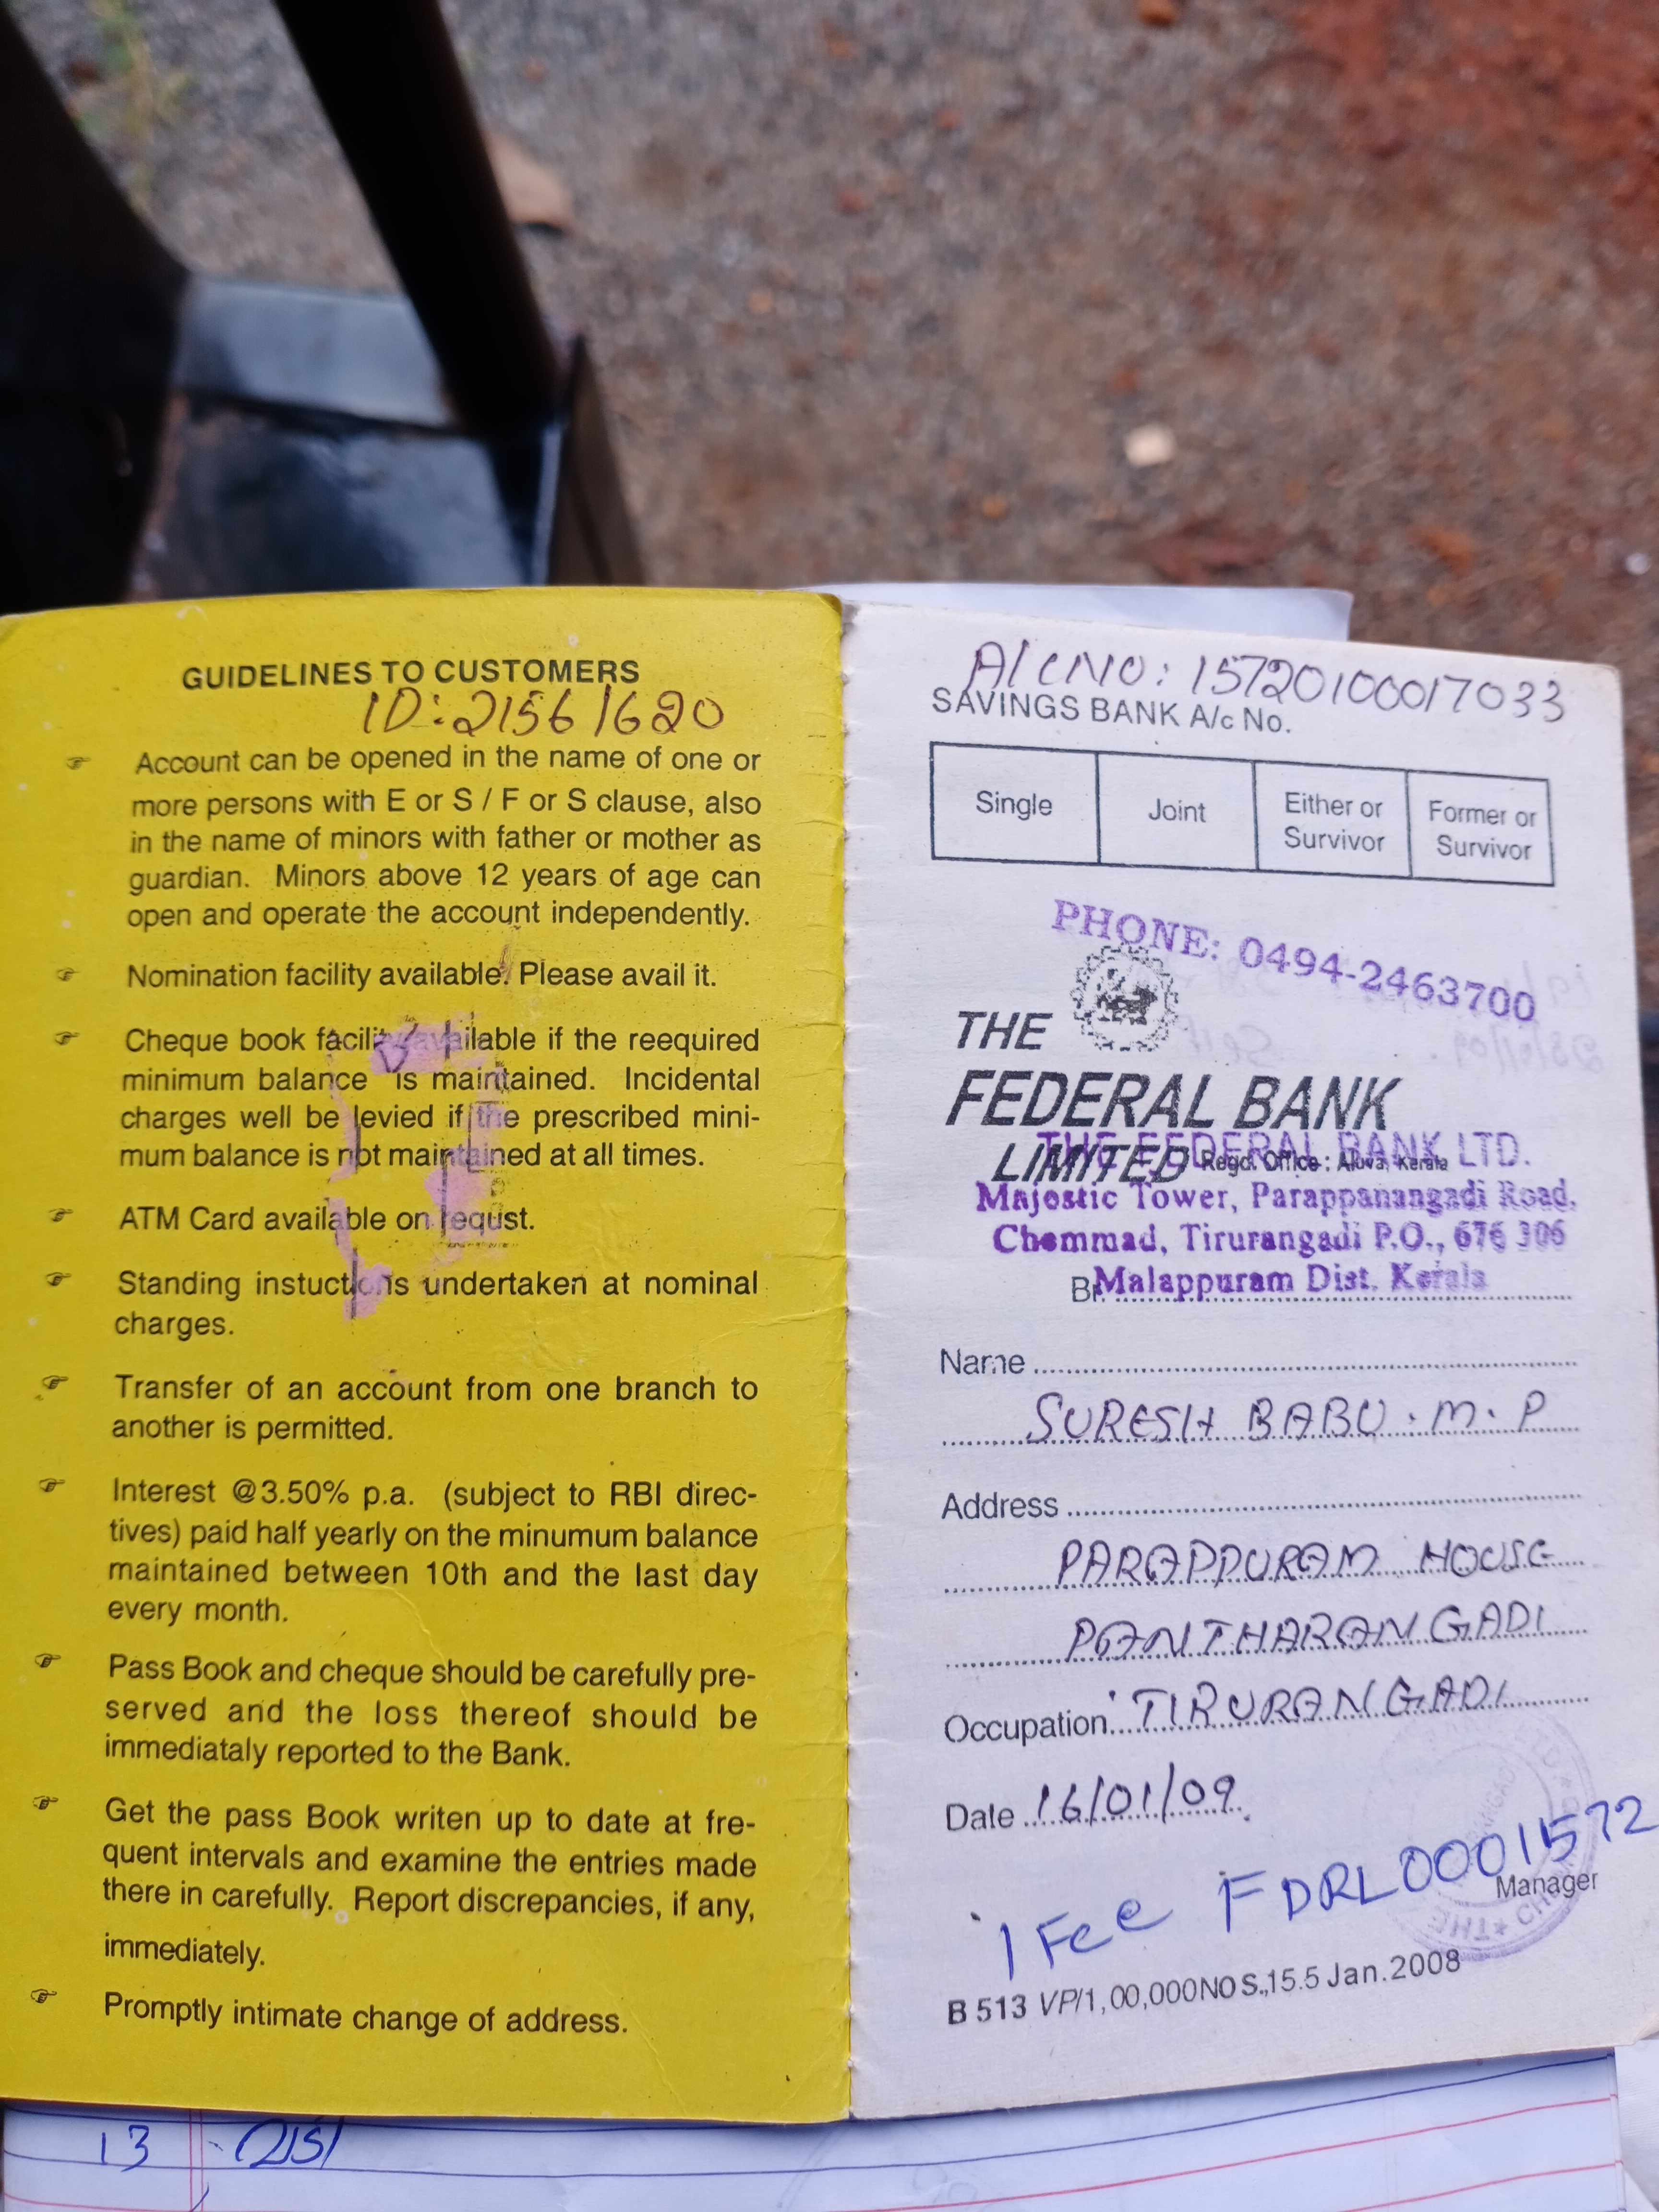 GUIDELINES TO CUSTOMERS
ID: 21561620
Account can be opened in the name of one or
more persons with E or S / F or S clause, also
in the name of minors with father or mother as
guardian. Minors above 12 years of age can
open and operate the account independently.
Nomination facility available. Please avail it.
Cheque book facility available if the reequired
minimum balance is maintained. Incidental
charges well be levied if the prescribed mini-
mum balance is not maintained at all times.
ATM Card available on requst.
Standing instuctions undertaken at nominal
charges.
Transfer of an account from one branch to
another is permitted.
Interest @3.50% p.a. (subject to RBI direc-
tives) paid half yearly on the minumum balance
maintained between 10th and the last day
every month.
Pass Book and cheque should be carefully pre-
served and the loss thereof should be
immediataly reported to the Bank.
Get the pass Book writen up to date at fre-
quent intervals and examine the entries made
there in carefully. Report discrepancies, if any,
immediately.
Promptly intimate change of address.
A/C NO: 15720100017033
SAVINGS BANK A/c No.
Single Joint Either or Survivor Former or Survivor
PHONE: 0494-2463700
THE
FEDERAL BANK
LIMITED Regd. Office : Aluva, Kerala
THE FEDERAL BANK LTD.
Majestic Tower, Parappanangadi Road,
Chemmad, Tirurangadi P.O., 676 306
Malappuram Dist. Kerala
Name
SURESH BABU . M . P
Address
PARAPPURAM HOUSE
PANTHARANGADI
Occupation TIRURANGADI
Date 16/01/09
IFCC FDRL0001572
Manager
B 513 VP/1,00,000NOS.,15.5 Jan.2008
13